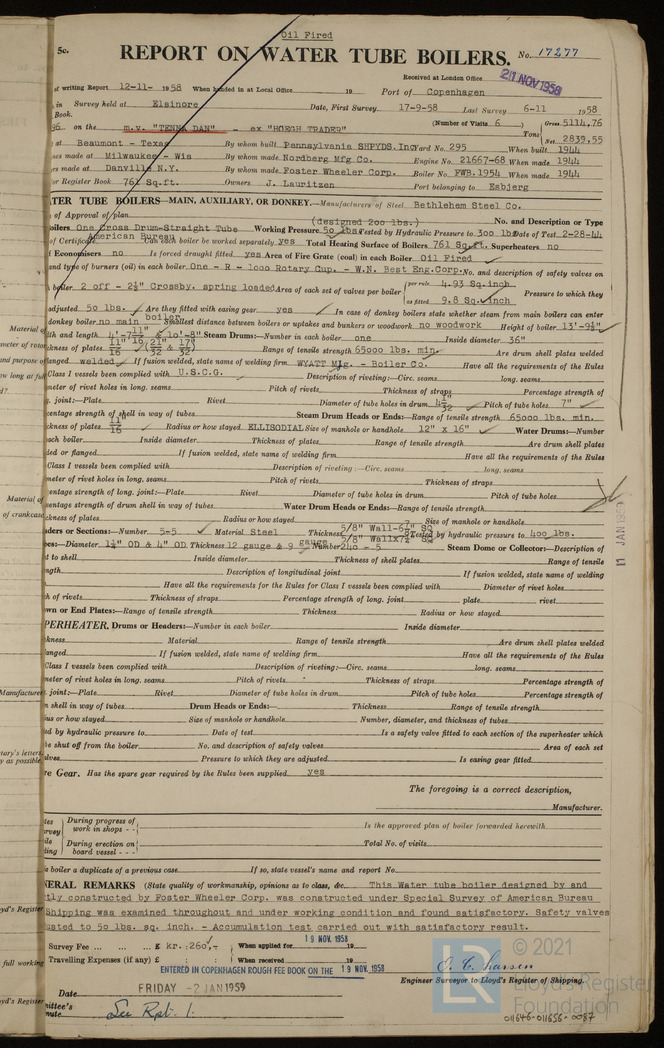 Oil Fired
5c.
REPORT ON WATER TUBE BOILERS. No. 17277
Received at London Office 21 NOV 1958
of writing Report 12-11- 1958 When handed in at Local Office 19 Port of Copenhagen
in Survey held at Elsinore Date, First Survey 17-9-58 Last Survey 6-11 1958
Book.
96 on the m.v. "TENNA DAN" - ex "HOEGH TRADER" (Number of Visits 6 ) Tons Gross 5114,76 Net 2839,55
at Beaumont - Texas By whom built Pennsylvania SHPYDS.INC Yard No. 295 When built 1944
es made at Milwaukee - Wis By whom made Nordberg Mfg Co. Engine No. 21667-68 When made 1944
rs made at Danville N.Y. By whom made Foster Wheeler Corp. Boiler No. FWB.1954 When made 1944
or Register Book 761 Sq.ft. Owners J. Lauritzen Port belonging to Esbjerg
ATER TUBE BOILERS—MAIN, AUXILIARY, OR DONKEY.—Manufacturers of Steel Bethlehem Steel Co.
of Approval of plan (designed 200 lbs.) No. and Description or Type
Boilers One Cross Drum-Straight Tube Working Pressure 50 lbs Tested by Hydraulic Pressure to 300 lbs Date of Test 2-28-44
of Certificate American Bureau Can each boiler be worked separately yes Total Heating Surface of Boilers 761 Sq.ft. Superheaters no
Economisers no Is forced draught fitted yes Area of Fire Grate (coal) in each Boiler Oil Fired
and type of burners (oil) in each boiler One - R - 1000 Rotary Cup. - W.N. Best Eng.Corp. No. and description of safety valves on
boiler 2 off - 2½" Crossby. spring loaded Area of each set of valves per boiler per rule 4.93 Sq.inch as fitted 9.8 Sq.inch Pressure to which they
adjusted 50 lbs. Are they fitted with easing gear yes In case of donkey boilers state whether steam from main boilers can enter
donkey boiler no main boiler Smallest distance between boilers or uptakes and bunkers or woodwork no woodwork Height of boiler 13'-9½"
Steam Drums:—Number in each boiler one Inside diameter 36"
kness of plates 11/16 Range of tensile strength 65000 lbs. min. Are drum shell plates welded
flanged welded If fusion welded, state name of welding firm WYATT Mfg. - Boiler Co. Have all the requirements of the Rules
Class I vessels been complied with U.S.C.G. Description of riveting:—Circ. seams long. seams
meter of rivet holes in long. seams Pitch of rivets Thickness of straps Percentage strength of
g. joint:—Plate Rivet Diameter of tube holes in drum 4 1/32" Pitch of tube holes 7"
centage strength of shell in way of tubes Steam Drum Heads or Ends:—Range of tensile strength 65000 lbs. min.
kness of plates 11/16 Radius or how stayed ELLISODIAL Size of manhole or handhole 12" x 16" Water Drums:—Number
each boiler Inside diameter Thickness of plates Range of tensile strength Are drum shell plates
ded or flanged If fusion welded, state name of welding firm Have all the requirements of the Rules
Class I vessels been complied with Description of riveting:—Circ. seams long. seams
meter of rivet holes in long. seams Pitch of rivets Thickness of straps
centage strength of long. joint:—Plate Rivet Diameter of tube holes in drum Pitch of tube holes
centage strength of drum shell in way of tubes Water Drum Heads or Ends:—Range of tensile strength
ckness of plates Radius or how stayed Size of manhole or handhole
aders or Sections:—Number 5-5 Material Steel Thickness Tested by hydraulic pressure to 400 lbs.
bes:—Diameter 1¼" OD & 4" OD Thickness 12 gauge & 9 gauge Number 240 - 5 Steam Dome or Collector:—Description of
nt to shell Inside diameter Thickness of shell plates Range of tensile
ength Description of longitudinal joint If fusion welded, state name of welding
Have all the requirements for the Rules for Class I vessels been complied with Diameter of rivet holes
h of rivets Thickness of straps Percentage strength of long. joint plate rivet
own or End Plates:—Range of tensile strength Thickness Radius or how stayed
PERHEATER, Drums or Headers:—Number in each boiler Inside diameter
kness Material Range of tensile strength Are drum shell plates welded
anged If fusion welded, state name of welding firm Have all the requirements of the Rules
Class I vessels been complied with Description of riveting:—Circ. seams long. seams
meter of rivet holes in long. seams Pitch of rivets Thickness of straps Percentage strength of
joint:—Plate Rivet Diameter of tube holes in drum Pitch of tube holes Percentage strength of
n shell in way of tubes Drum Heads or Ends:— Thickness Range of tensile strength
ius or how stayed Size of manhole or handhole Number, diameter, and thickness of tubes
ed by hydraulic pressure to Date of test Is a safety valve fitted to each section of the superheater which
be shut off from the boiler No. and description of safety valves Area of each set
alves Pressure to which they are adjusted Is easing gear fitted
re Gear. Has the spare gear required by the Rules been supplied yes
The foregoing is a correct description,
Manufacturer.
During progress of work in shops - - Is the approved plan of boiler forwarded herewith
During erection on board vessel - - - Total No. of visits
is boiler a duplicate of a previous case If so, state vessel's name and report No.
NERAL REMARKS (State quality of workmanship, opinions as to class, &c. This Water tube boiler designed by and
tly constructed by Foster Wheeler Corp. was constructed under Special Survey of American Bureau
Shipping was examined throughout and under working condition and found satisfactory. Safety valves
usted to 50 lbs. sq. inch. - Accumulation test carried out with satisfactory result.
Survey Fee ... ... ... £ kr.:260,- When applied for 19 NOV. 1958 19
Travelling Expenses (if any) £ : : When received 19
ENTERED IN COPENHAGEN ROUGH FEE BOOK ON THE 19 NOV. 1958
Engineer Surveyor to Lloyd's Register of Shipping.
Date FRIDAY - 2 JAN 1959
mittee's
nute See Rpt. 1.
© 2021
Lloyd's Register
Foundation
LR
011646-011656-0087